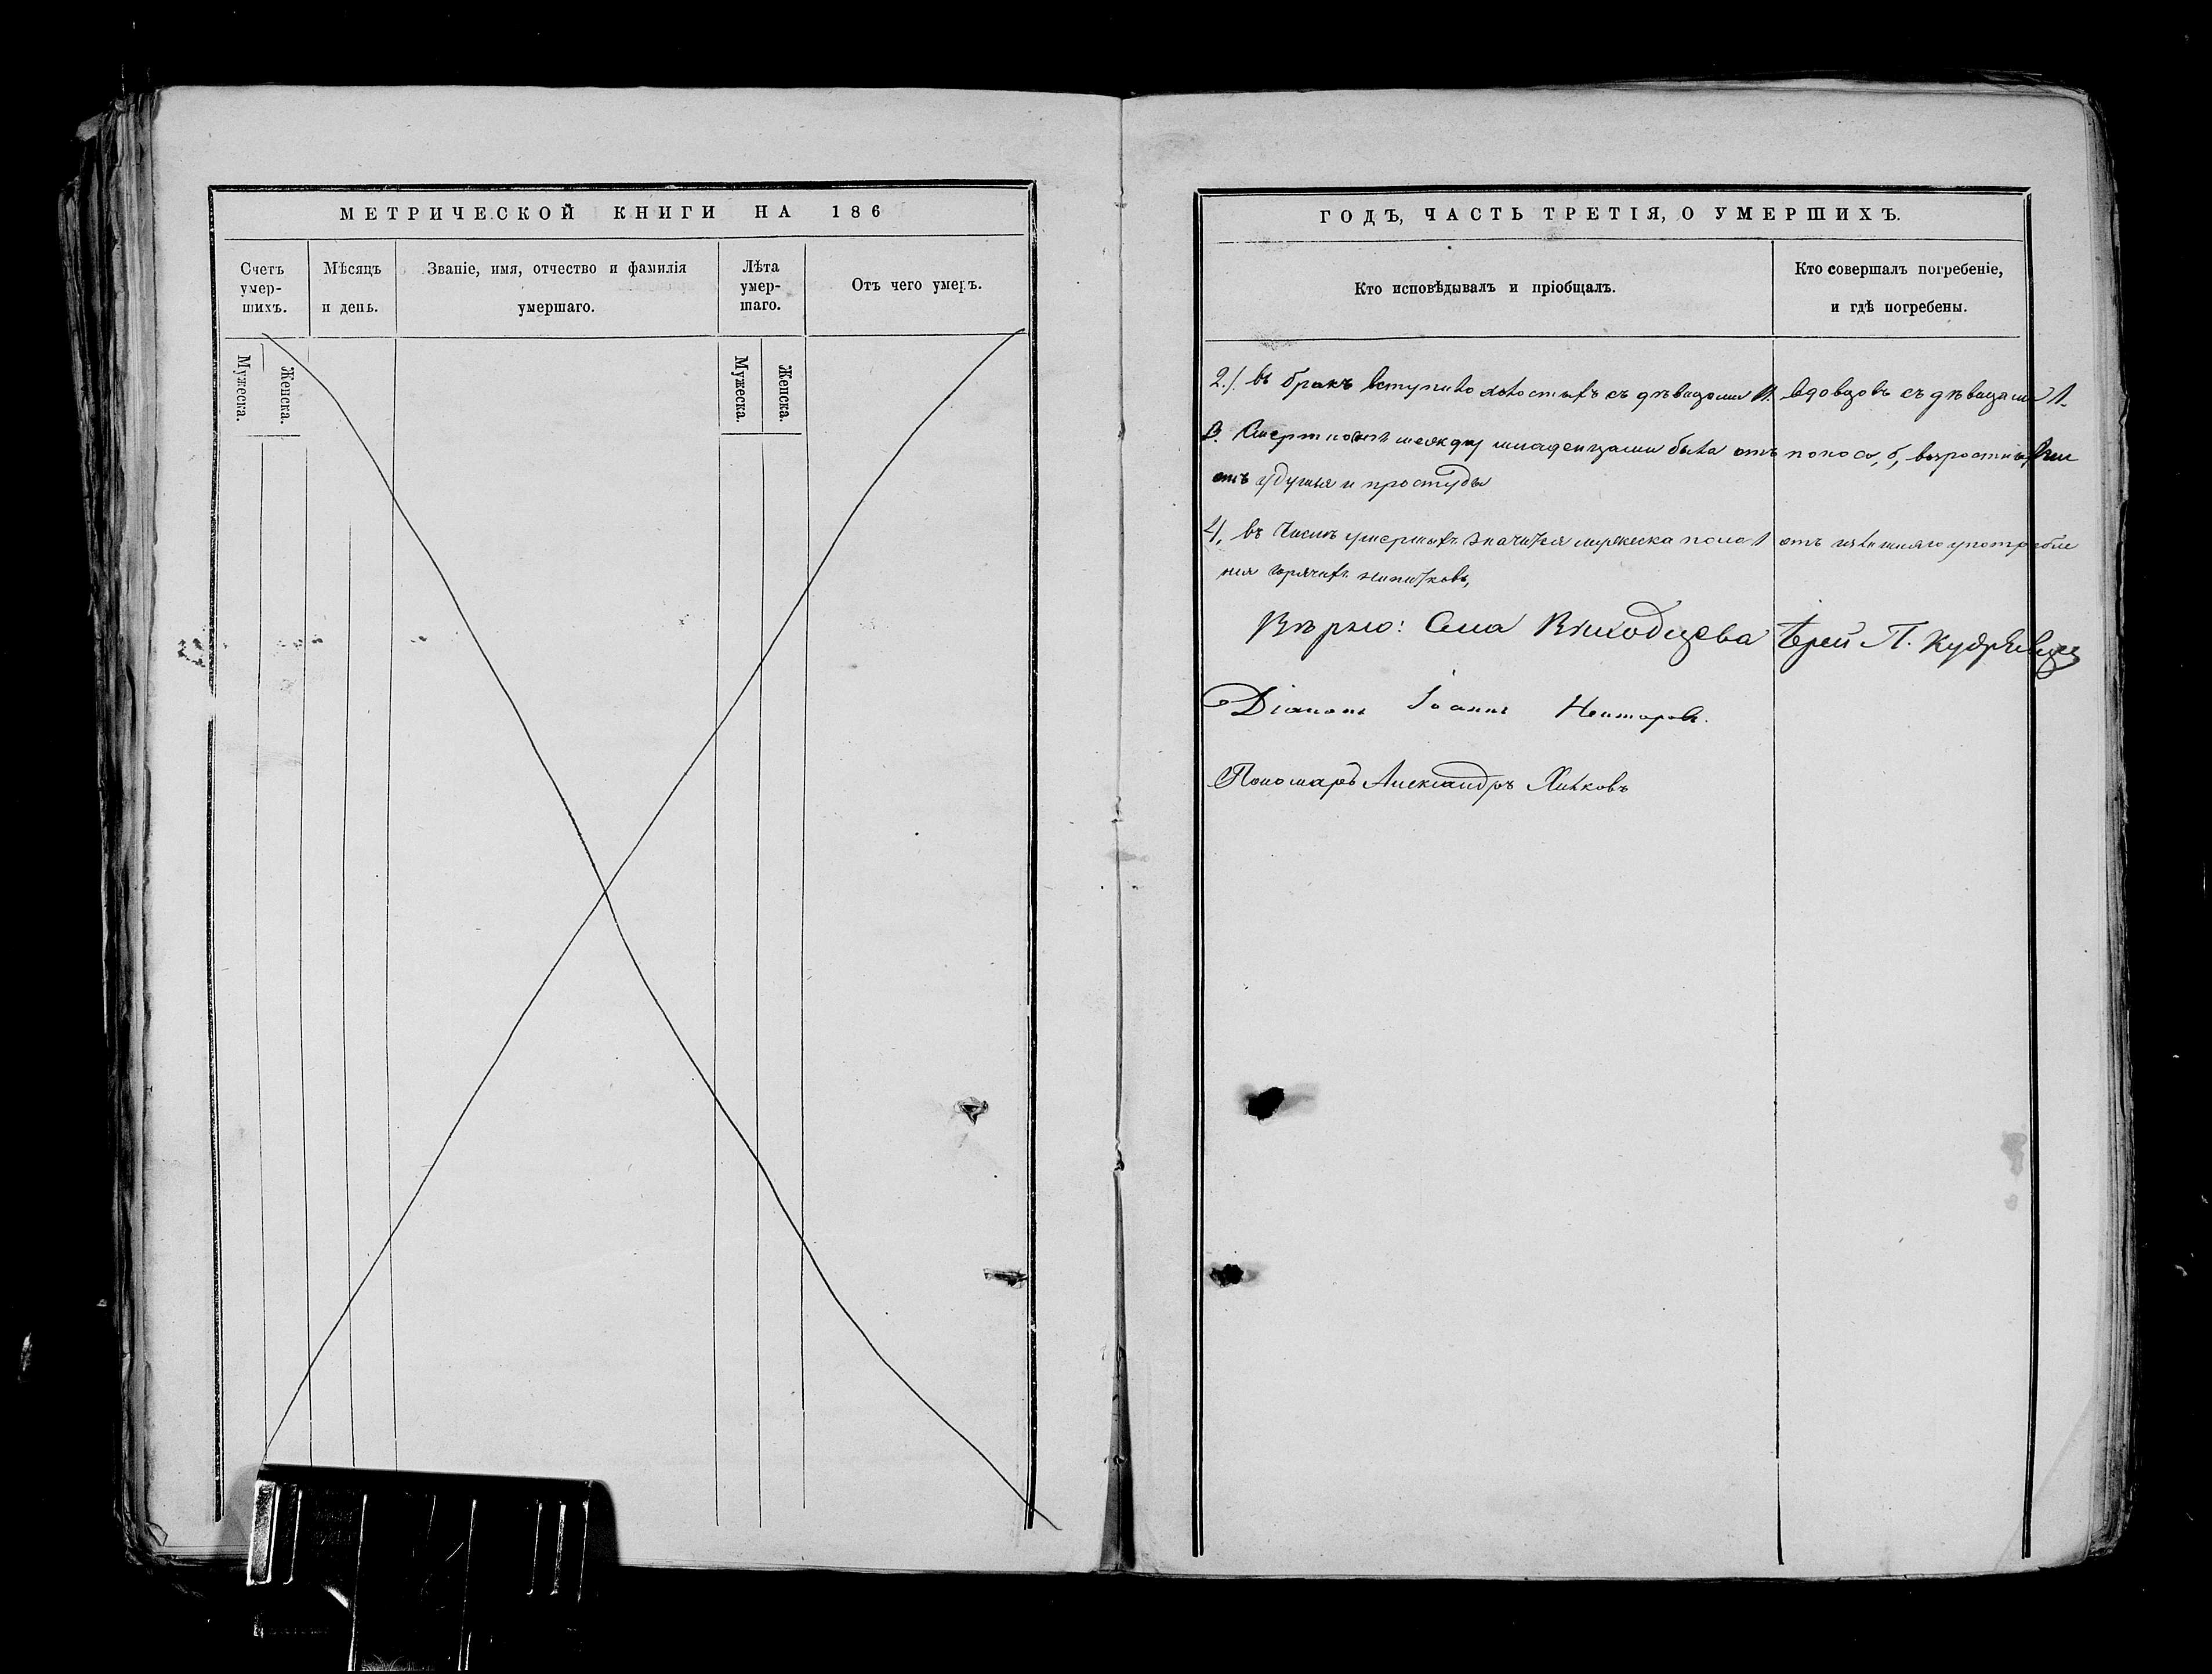 МЕТРИЧЕСКОЙ КНИГИ НА 186
Счетъ умер-шихъ.
Мужеска.
Женска.
Мѣсяцъ и день.
Званіе, имя, отчество и фамилія умершаго.
Лѣта умер-шаго.
Мужеска.
Женска.
Отъ чего умеръ.
ГОДЪ, ЧАСТЬ ТРЕТІЯ, О УМЕРШИХЪ.
Кто исповѣдывалъ и пріобщалъ.
Кто совершалъ погребеніе, и гдѣ погребены.
2./. въ бракъ вступило холостыхъ съ дѣвицами вдовцовъ съ дѣвицами 1.
3. Смертность между младенцами была отъ поноса,
отъ удушья и простуды
4, въ числѣ умершихъ значится мужеска пола 1 отъ излишняго употребле
нія горячихъ напитковъ,
Вѣрно: Села Іерей П. Кудрявцев
Діаконъ Іоаннъ Нектаровъ.
Пономарь Александръ Хилковъ